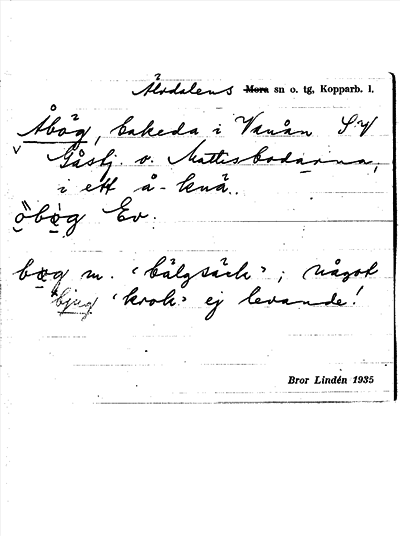 Älvdalens Mora sn o. tg, Kopparb. l.
Åbög, bakeda i Vanån SV
Gåsbj. o. Mattisbodarna,
i ett å-knä.
öbög Ev.
bög m. 'bälgsäck'; något
*bjug 'krok' ej levande!
Bror Lindén 1935